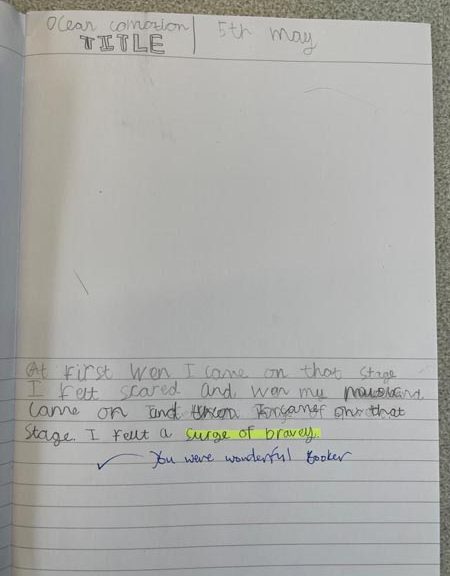 Ocean comotion | 5th may
TITLE
At first wen I came on that stage
I felt scared and wen my
came on and on that
stage. I felt a surge of bravey.
You were wonderful Booker